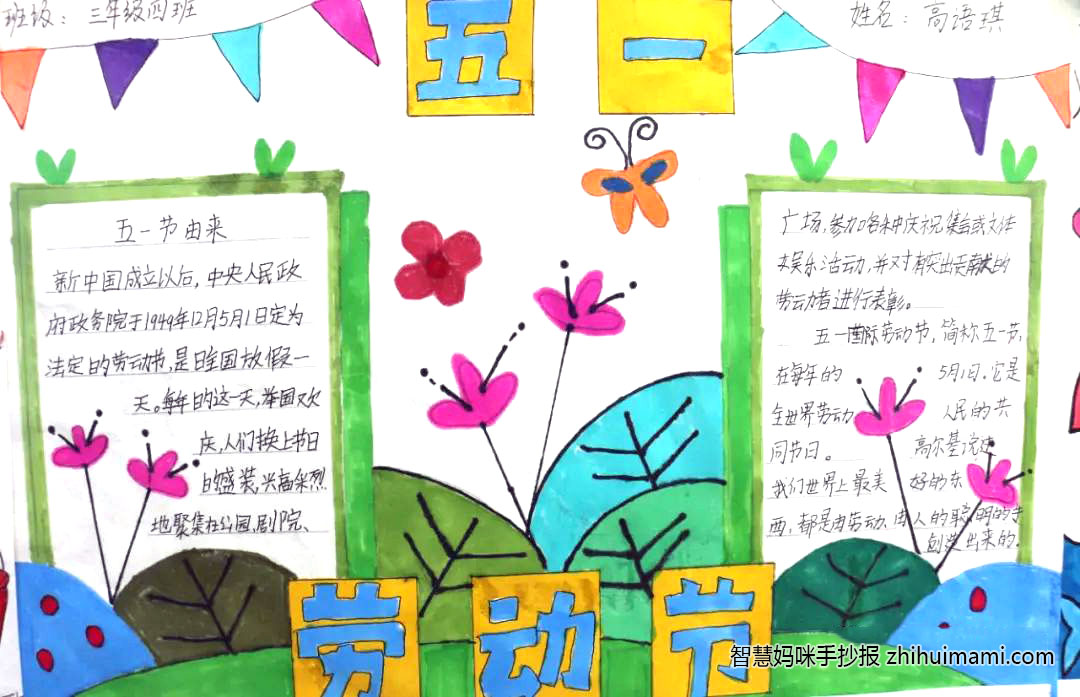 班级：三年级四班
姓名：高语琪
五一
五一节由来
新中国成立以后，中央人民政
府政务院于1949年12月5月1日定为
法定的劳动节，是日全国放假一
天。每年的这一天，举国欢
庆，人们换上节日
的盛装，兴高采烈
地聚集在公园、剧院、
广场，参加各种庆祝集会或文体
娱乐活动，并对有突出贡献的
劳动者进行表彰。
五一国际劳动节，简称五一节，
在每年的 5月1日。它是
全世界劳动 人民的共
同节日。 高尔基说过
我们世界上最美 好的东
西，都是由劳动、由人的聪明的手
创造出来的.
劳动节
智慧妈咪手抄报 zhihuimami.com